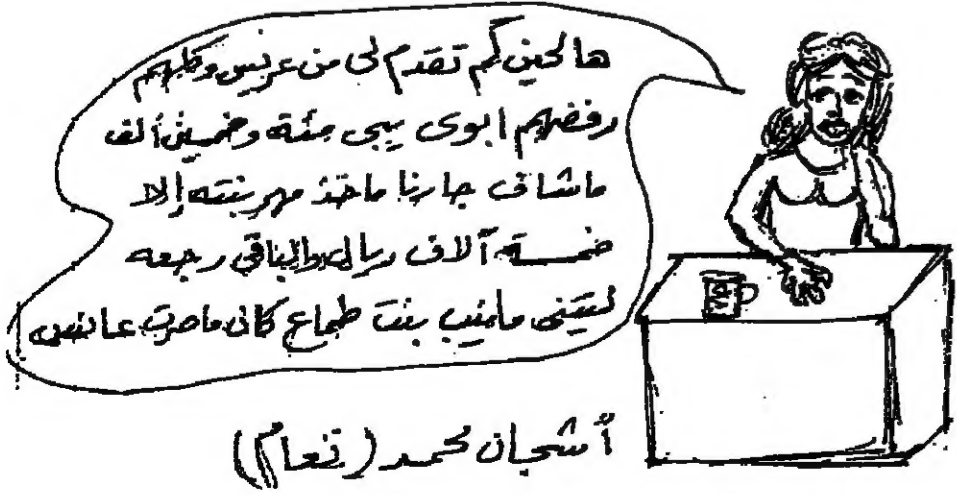 هالحين كم تقدم لى من عريس وكلهم
رفضهم ابوى يبى مئة وخمسين ألف
ماشاف جارنا ماخذ مهر بنته إلا
خمسة آلاف ريال والباقي رجعه
ليتنى مانيب بنت طماع كان ماصرت عانس
أشجان محمد (تنعام)